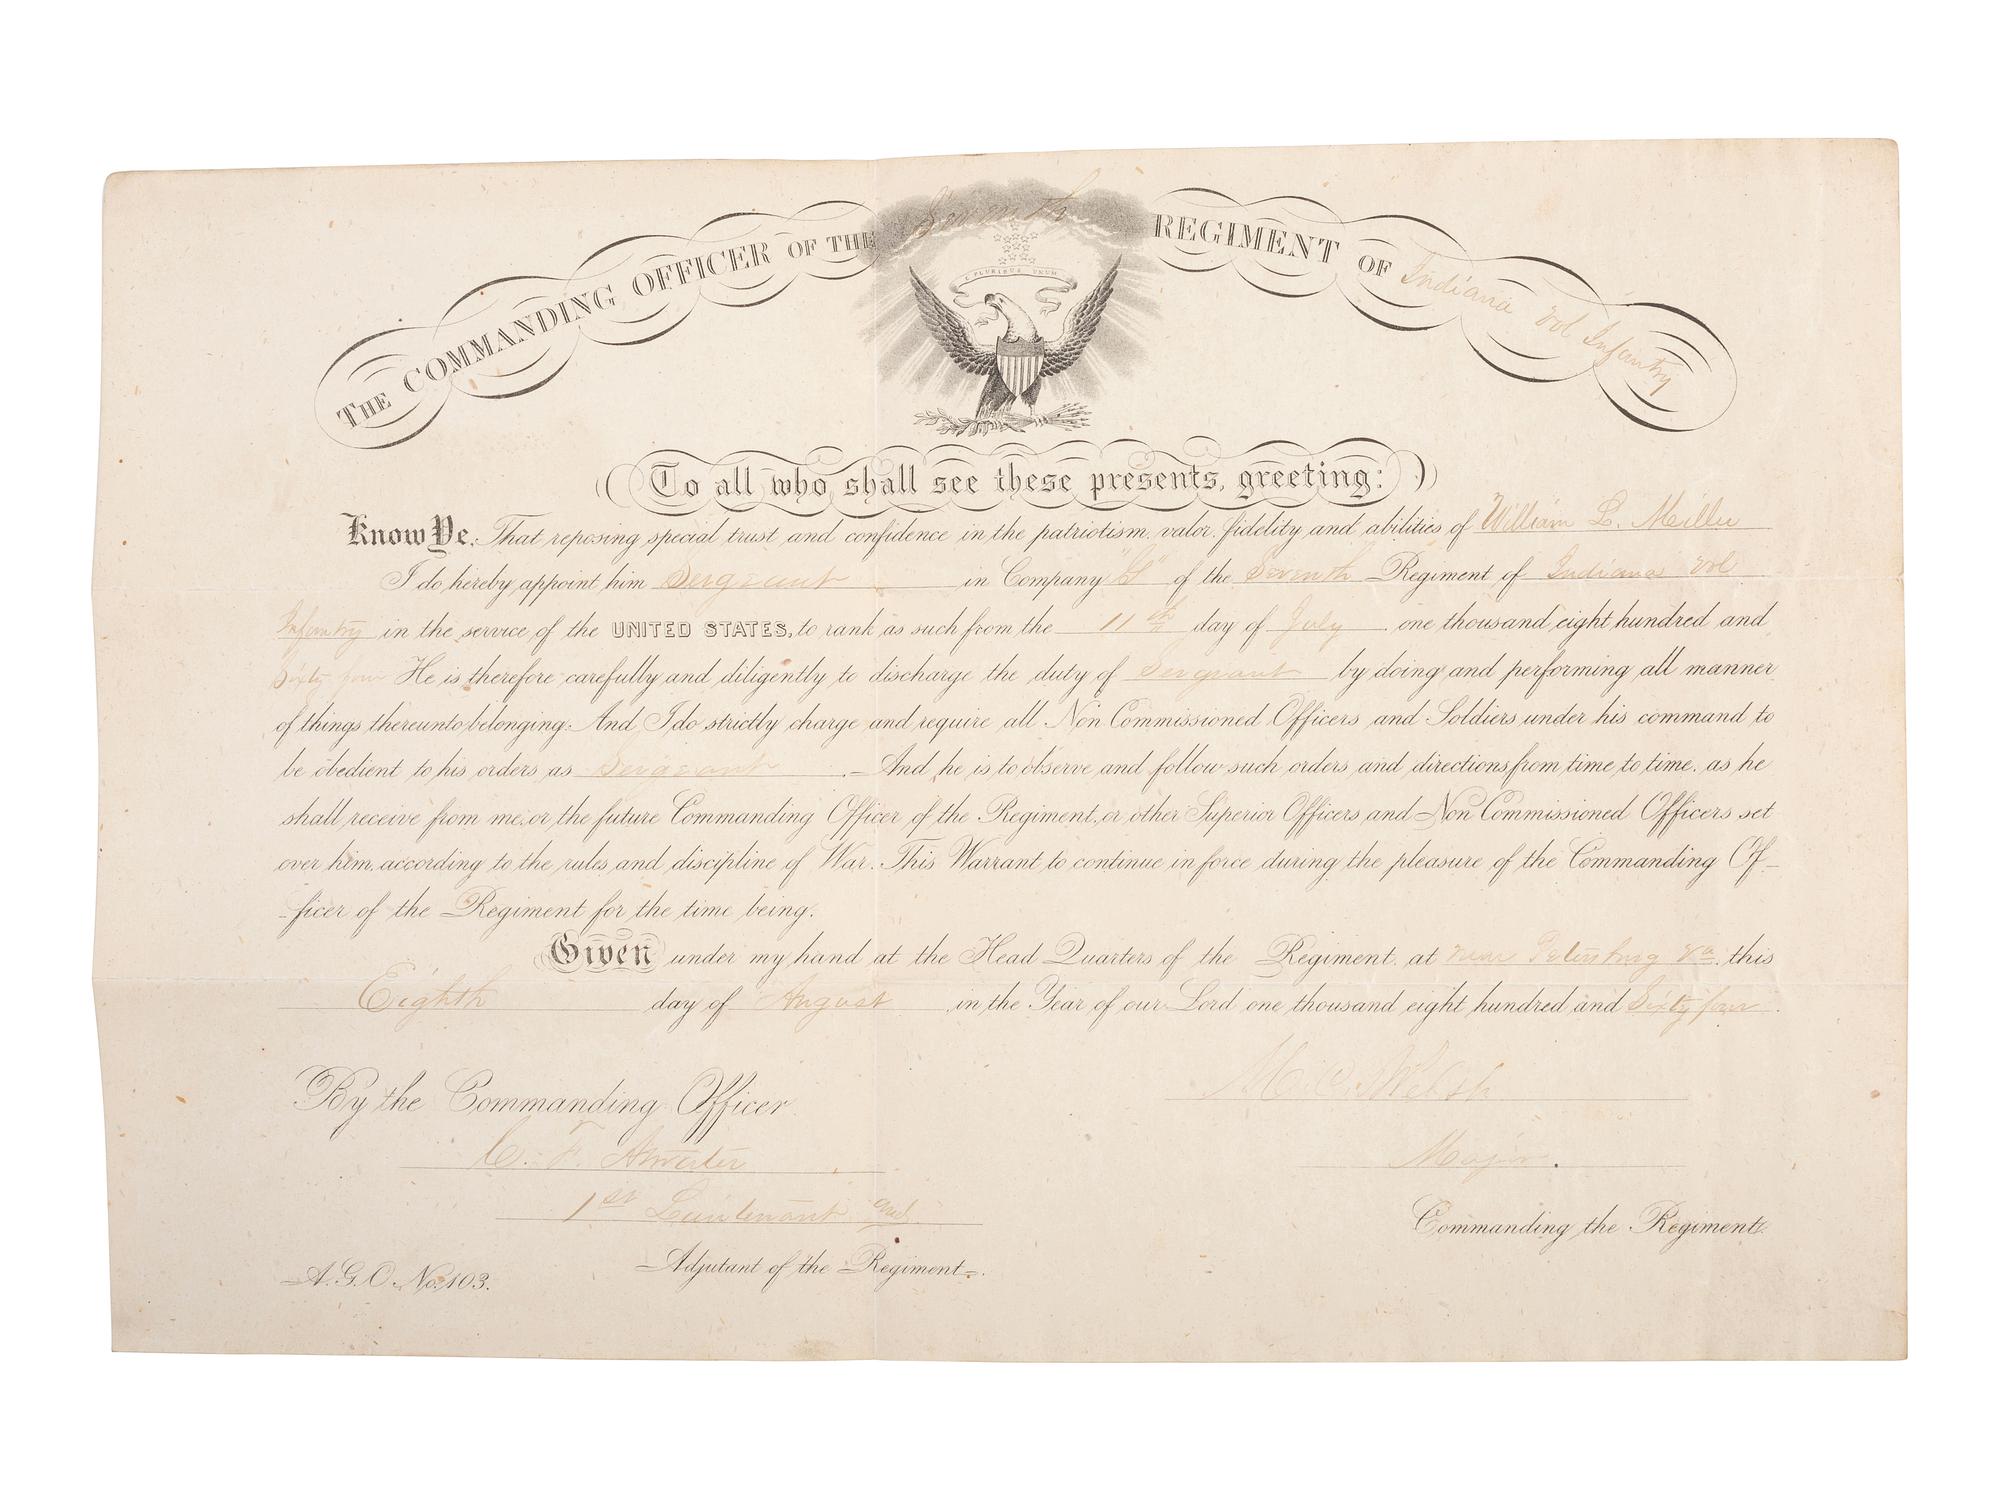 THE COMMANDING OFFICER OF THE Seventh REGIMENT OF Indiana Vol Infantry
E PLURIBUS UNUM
To all who shall see these presents, greeting:
Know Ye, That reposing special trust and confidence in the patriotism, valor, fidelity and abilities of William L. Miller
I do hereby appoint him Sergeant in Company "G" of the Seventh Regiment of Indiana Vol
Infantry in the service of the UNITED STATES, to rank as such from the 11th day of July one thousand eight hundred and
Sixty four He is therefore carefully and diligently to discharge the duty of Sergeant by doing and performing all manner
of things thereunto belonging. And I do strictly charge and require all Non Commissioned Officers and Soldiers under his command to
be obedient to his orders as Sergeant. And he is to observe and follow such orders and directions from time to time, as he
shall receive from me, or the future Commanding Officer of the Regiment, or other Superior Officers and Non Commissioned Officers set
over him, according to the rules and discipline of War. This Warrant to continue in force during the pleasure of the Commanding Of-
-ficer of the Regiment for the time being.
Given under my hand at the Head Quarters of the Regiment, at near Petersburg Va. this
Eighth day of August in the Year of our Lord one thousand eight hundred and Sixty four.
By the Commanding Officer.
M. C. Welsh
C. F.
Major.
1st Lieutenant and
Commanding the Regiment.
Adjutant of the Regiment.
A.G.O. No. 103.